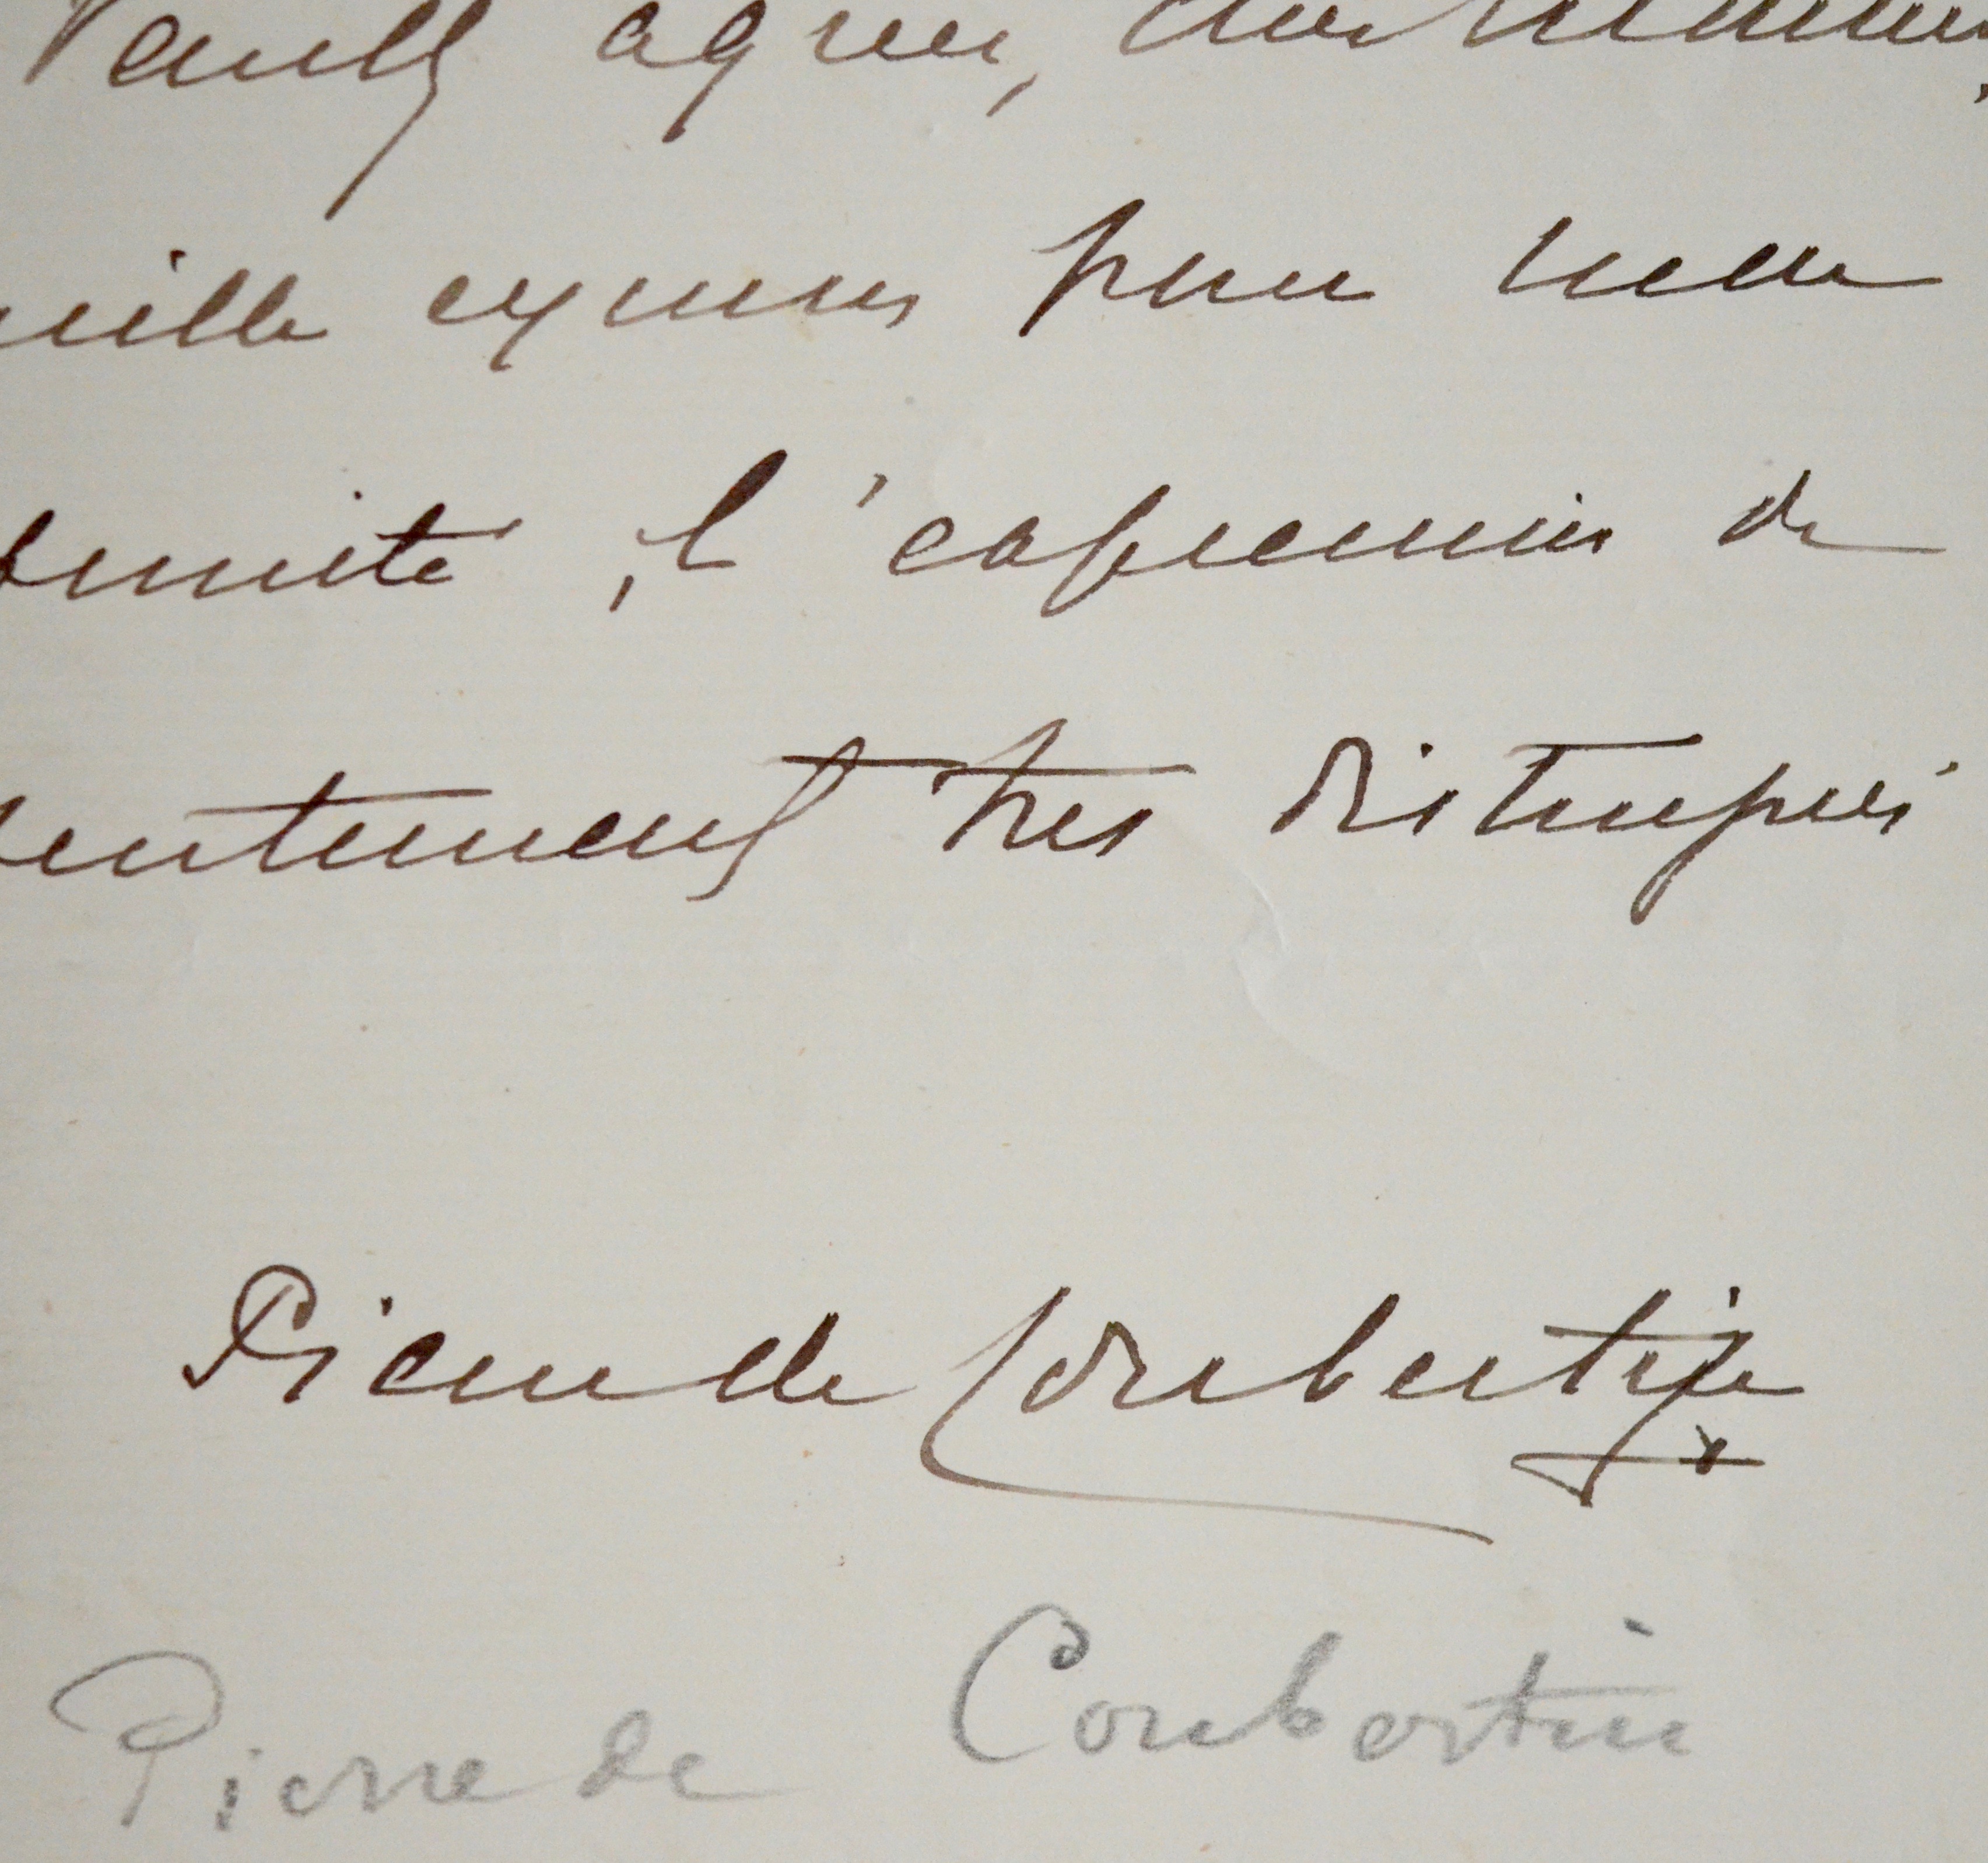 Veuillez agréer,
excuses pour cette
, l'expression de
sentiments très distingués
Pierre de Coubertin
Pierre de Coubertin